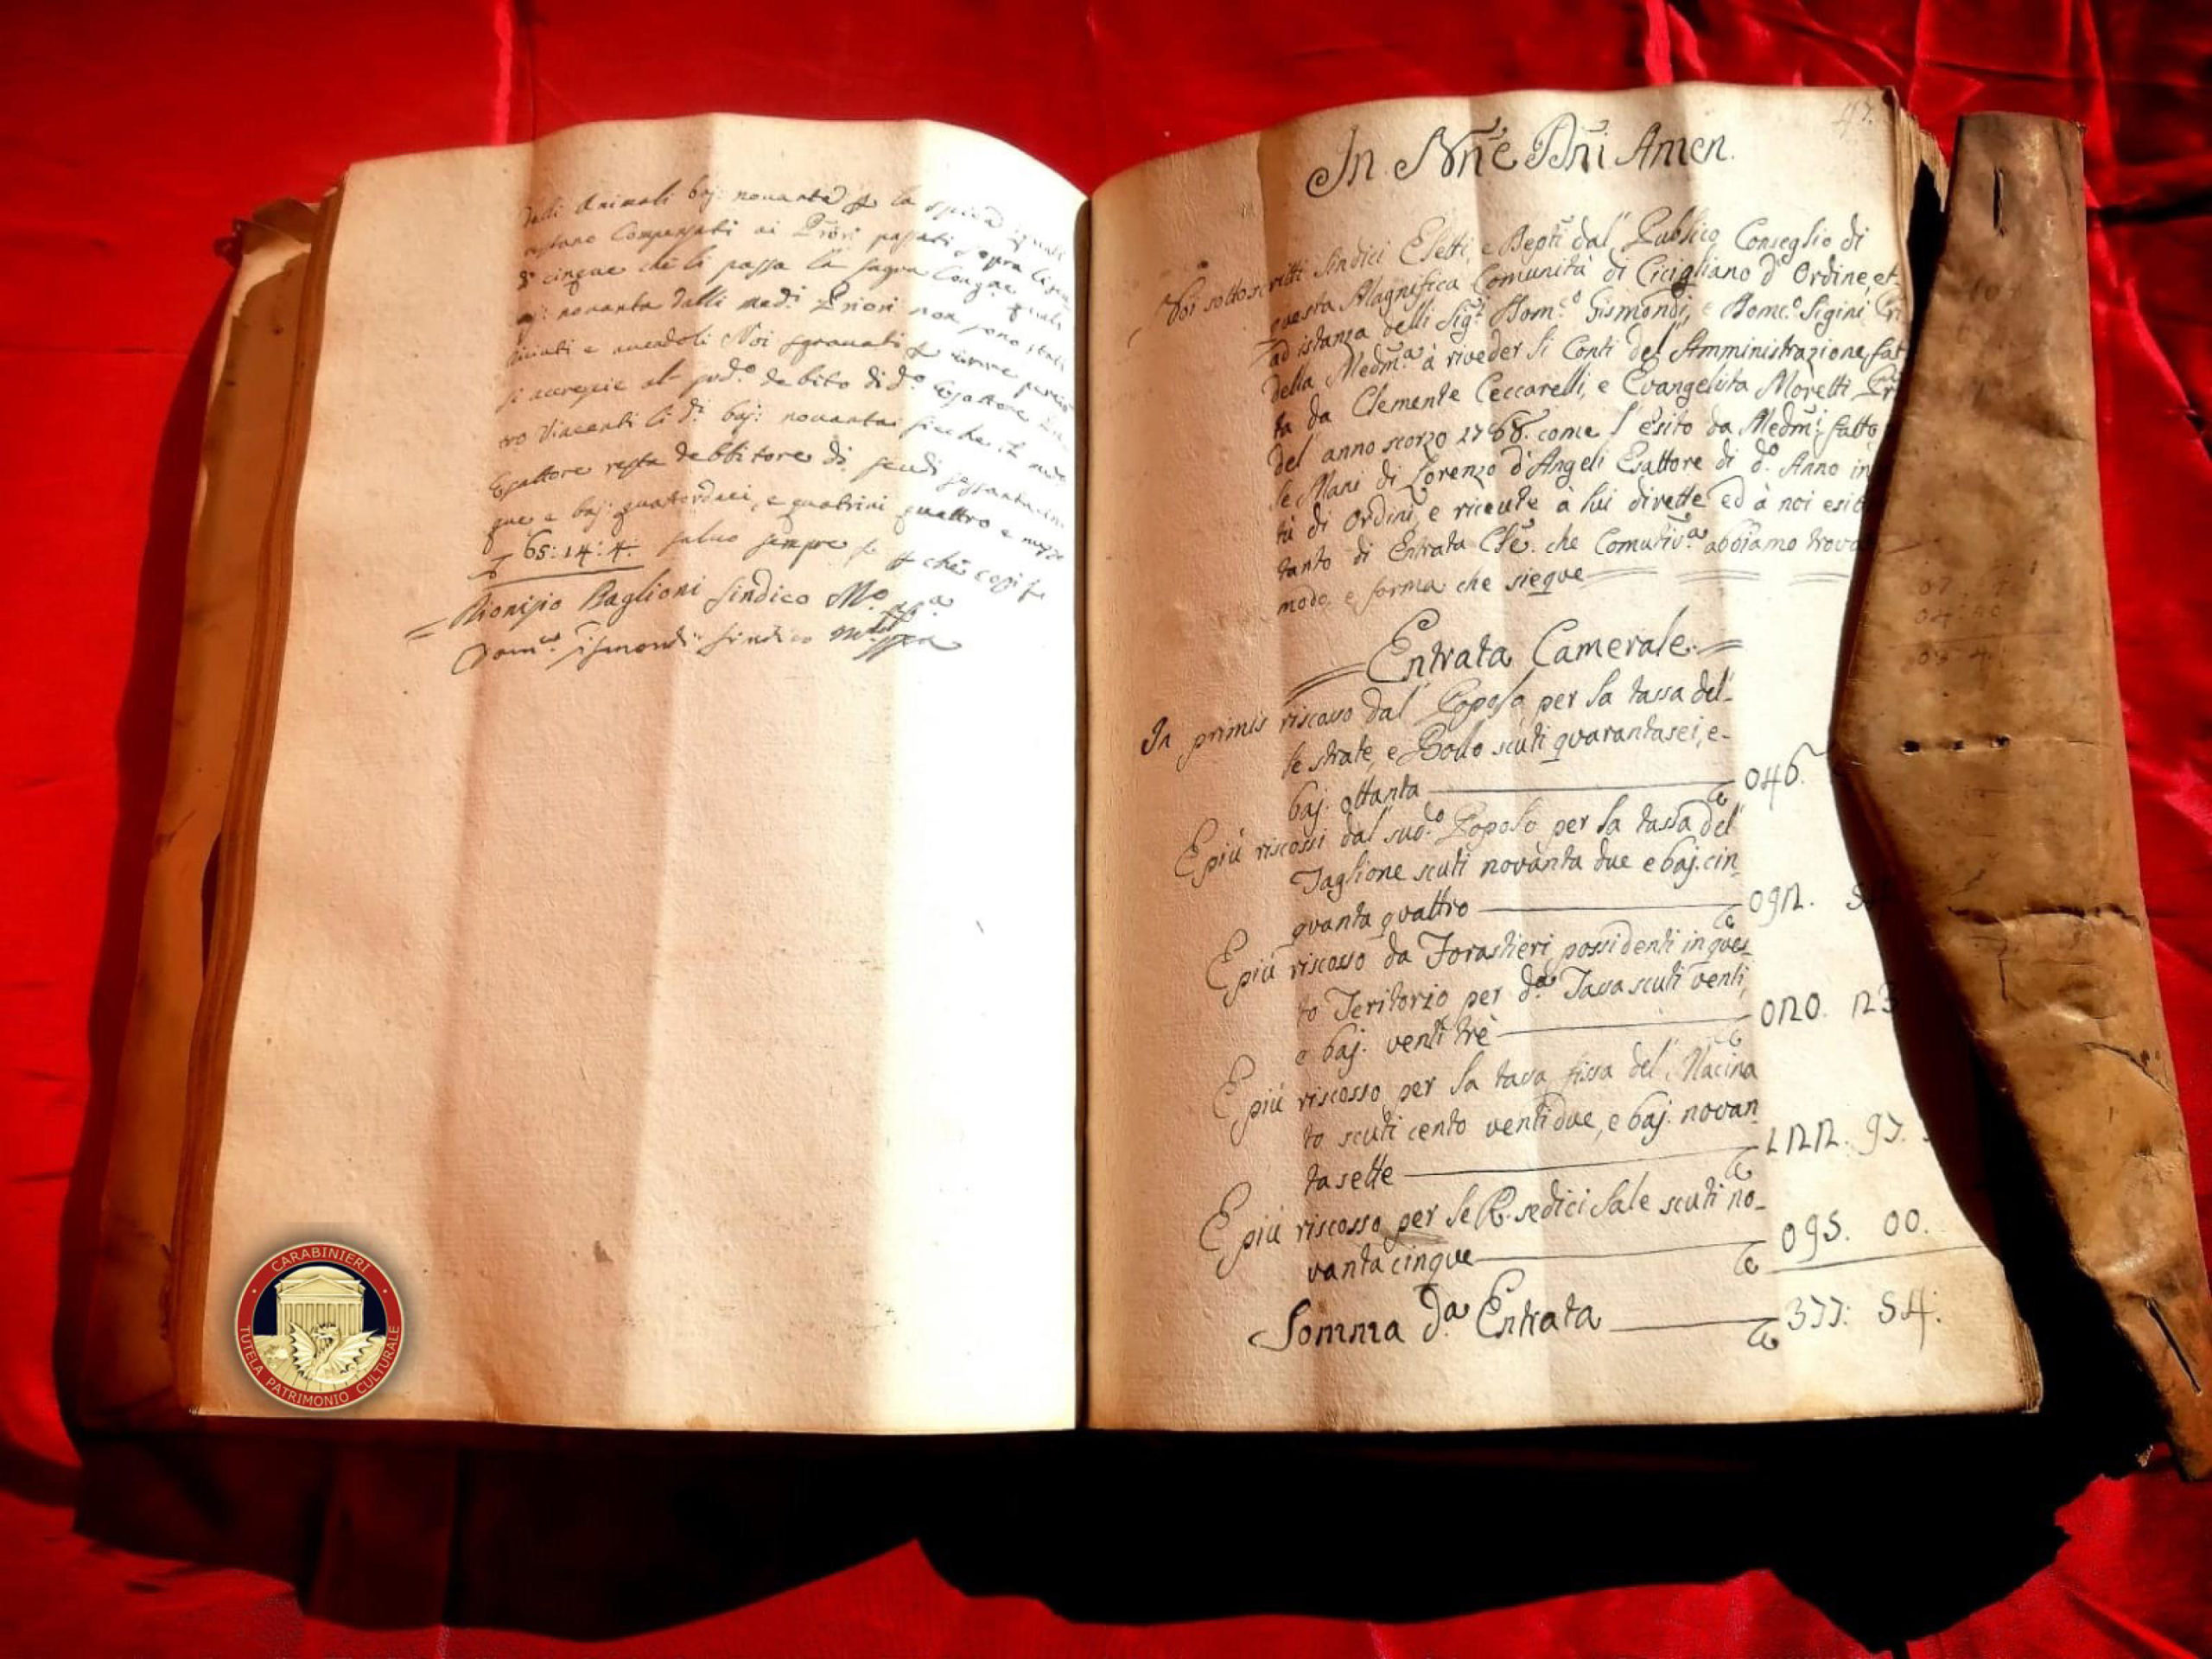 delli Animali baj: novanta la spica quali
restano Compensati ai Priori passati sopra li
cinque che li passa la sagra Congne quali
baj: novanta dalli medi Priori non sono stati
e Noi sgravati
si accresce al sudo debito di do Esattore
Vincenti li di baj: novanta sicche il
Esattore resta debbitore di scudi sessantacin
que e baj: quatordeci, e quatrini quattro e mezzo
65:14:4: salvo sempre che cosi
Dionisio Baglioni Sindico Mo pa
Domco Gismondi Sindico
47.
In Nñe Dñi Amen.
Noi sottoscritti Sindici Eletti, e Depti dal Publico Conseglio di
questa Magnifica Comunità di Cicigliano d'Ordine, et
ad istanza delli Sigri Domco Gismondi, e Domco Sigini Pri
della Medma à riveder li Conti del' Amministrazione fat
ta da Clemente Ceccarelli, e Evangelista Moretti Pri
del' anno scorzo 1768. come l'esito da Medmi fatto
le Mani di Lorenzo d'Angeli Esattore di do Anno in
tù di Ordini, e riceute à lui dirette ed à noi esib
tanto di Entrata Cle che Comutiva abbiamo trova
modo, e forma che sieque
Entrata Camerale
In primis riscosso dal' Popolo per la tassa del
le strate, e Bollo scuti quarantasei, e
baj. ottanta 046.
E più riscossi dal' sudo Popolo per la tassa del
Taglione scuti novanta due e baj. cin
quanta quattro 092. 54
E più riscosso da Forastieri possidenti in ques
to Teritorio per da Tassa scuti venti,
e baj. venti trè 020. 23
E più riscosso per la tassa fissa del' Macina
to scuti cento venti due, e baj. novan
tasette 122. 97.
E più riscosso per le R. sedici Sale scuti no
vantacinque 095. 00.
Somma da Entrata 377: 54:
CARABINIERI
TUTELA PATRIMONIO CULTURALE